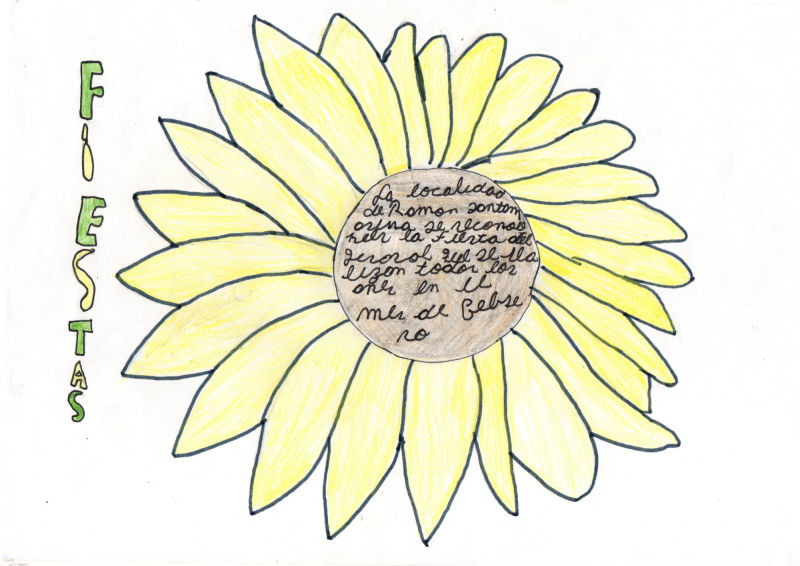 FIESTAS
La localidad
de Ramon Santam
arina se reconoce
por la Fiesta del
girasol que se rea
lizan todos los
años en el
mes de Febre
ro